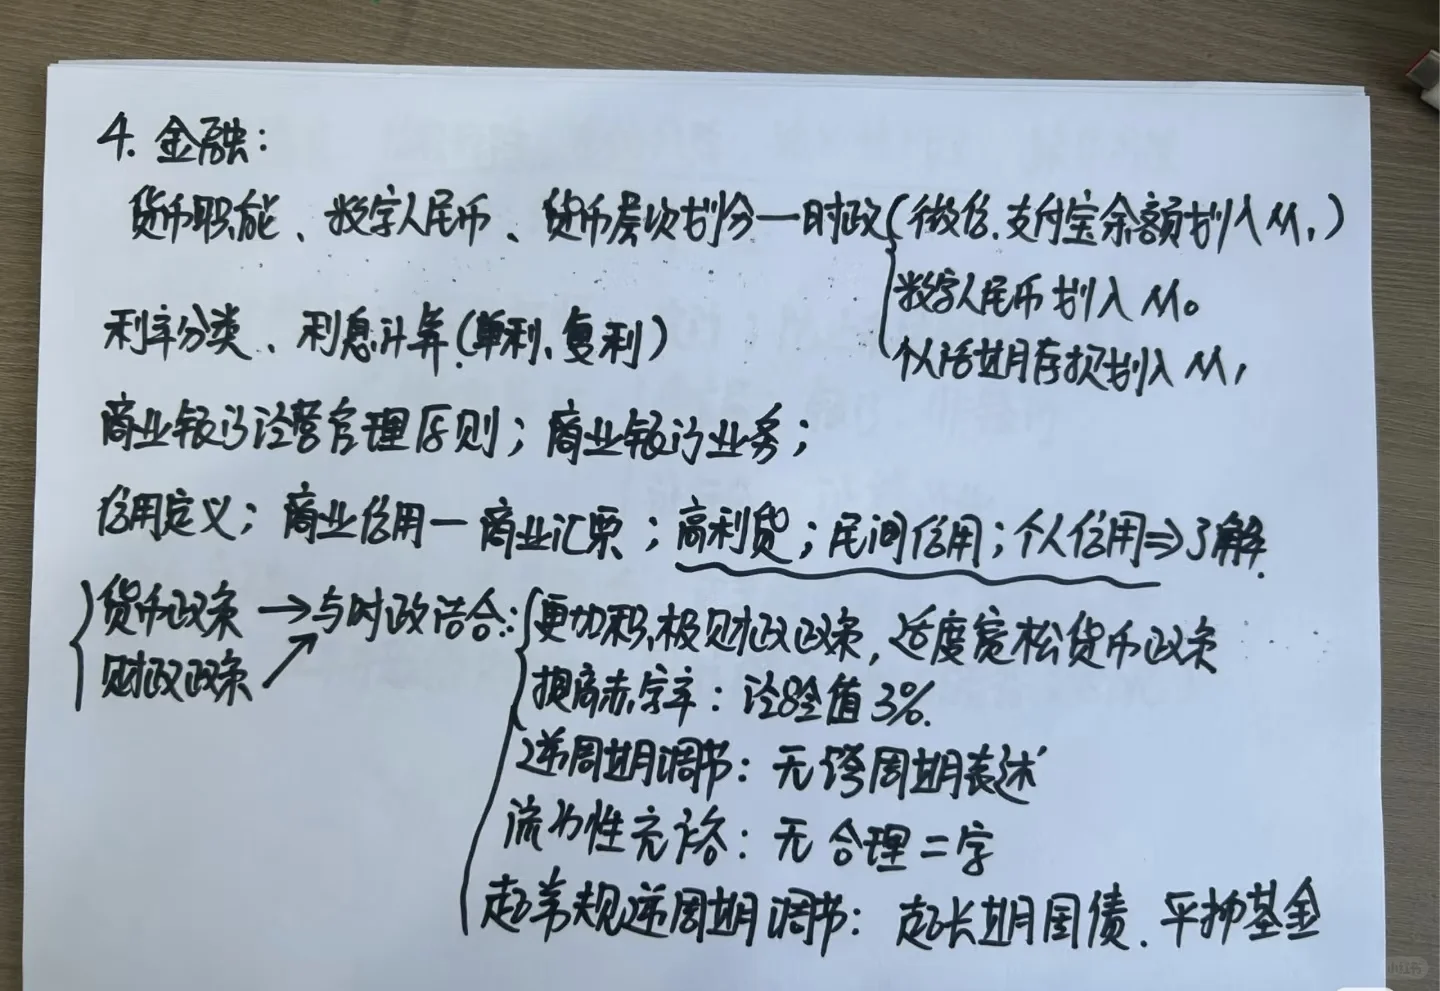 4. 金融：
货币职能、数字人民币、货币层次划分—时政(微信.支付宝余额划入M₁)
数字人民币划入M₀
利率分类、利息计算(单利、复利)
个人活期存款划入M₁
商业银行经营管理原则；商业银行业务；
信用定义；商业信用—商业汇票；高利贷；民间信用；个人信用⇒了解.
货币政策→与时政结合：更加积极财政政策，适度宽松货币政策
财政政策
提高赤字率：经验值3%.
逆周期调节：无跨周期表述
流动性充裕：无合理二字
超常规逆周期调节：超长期国债、平抑基金
小红书